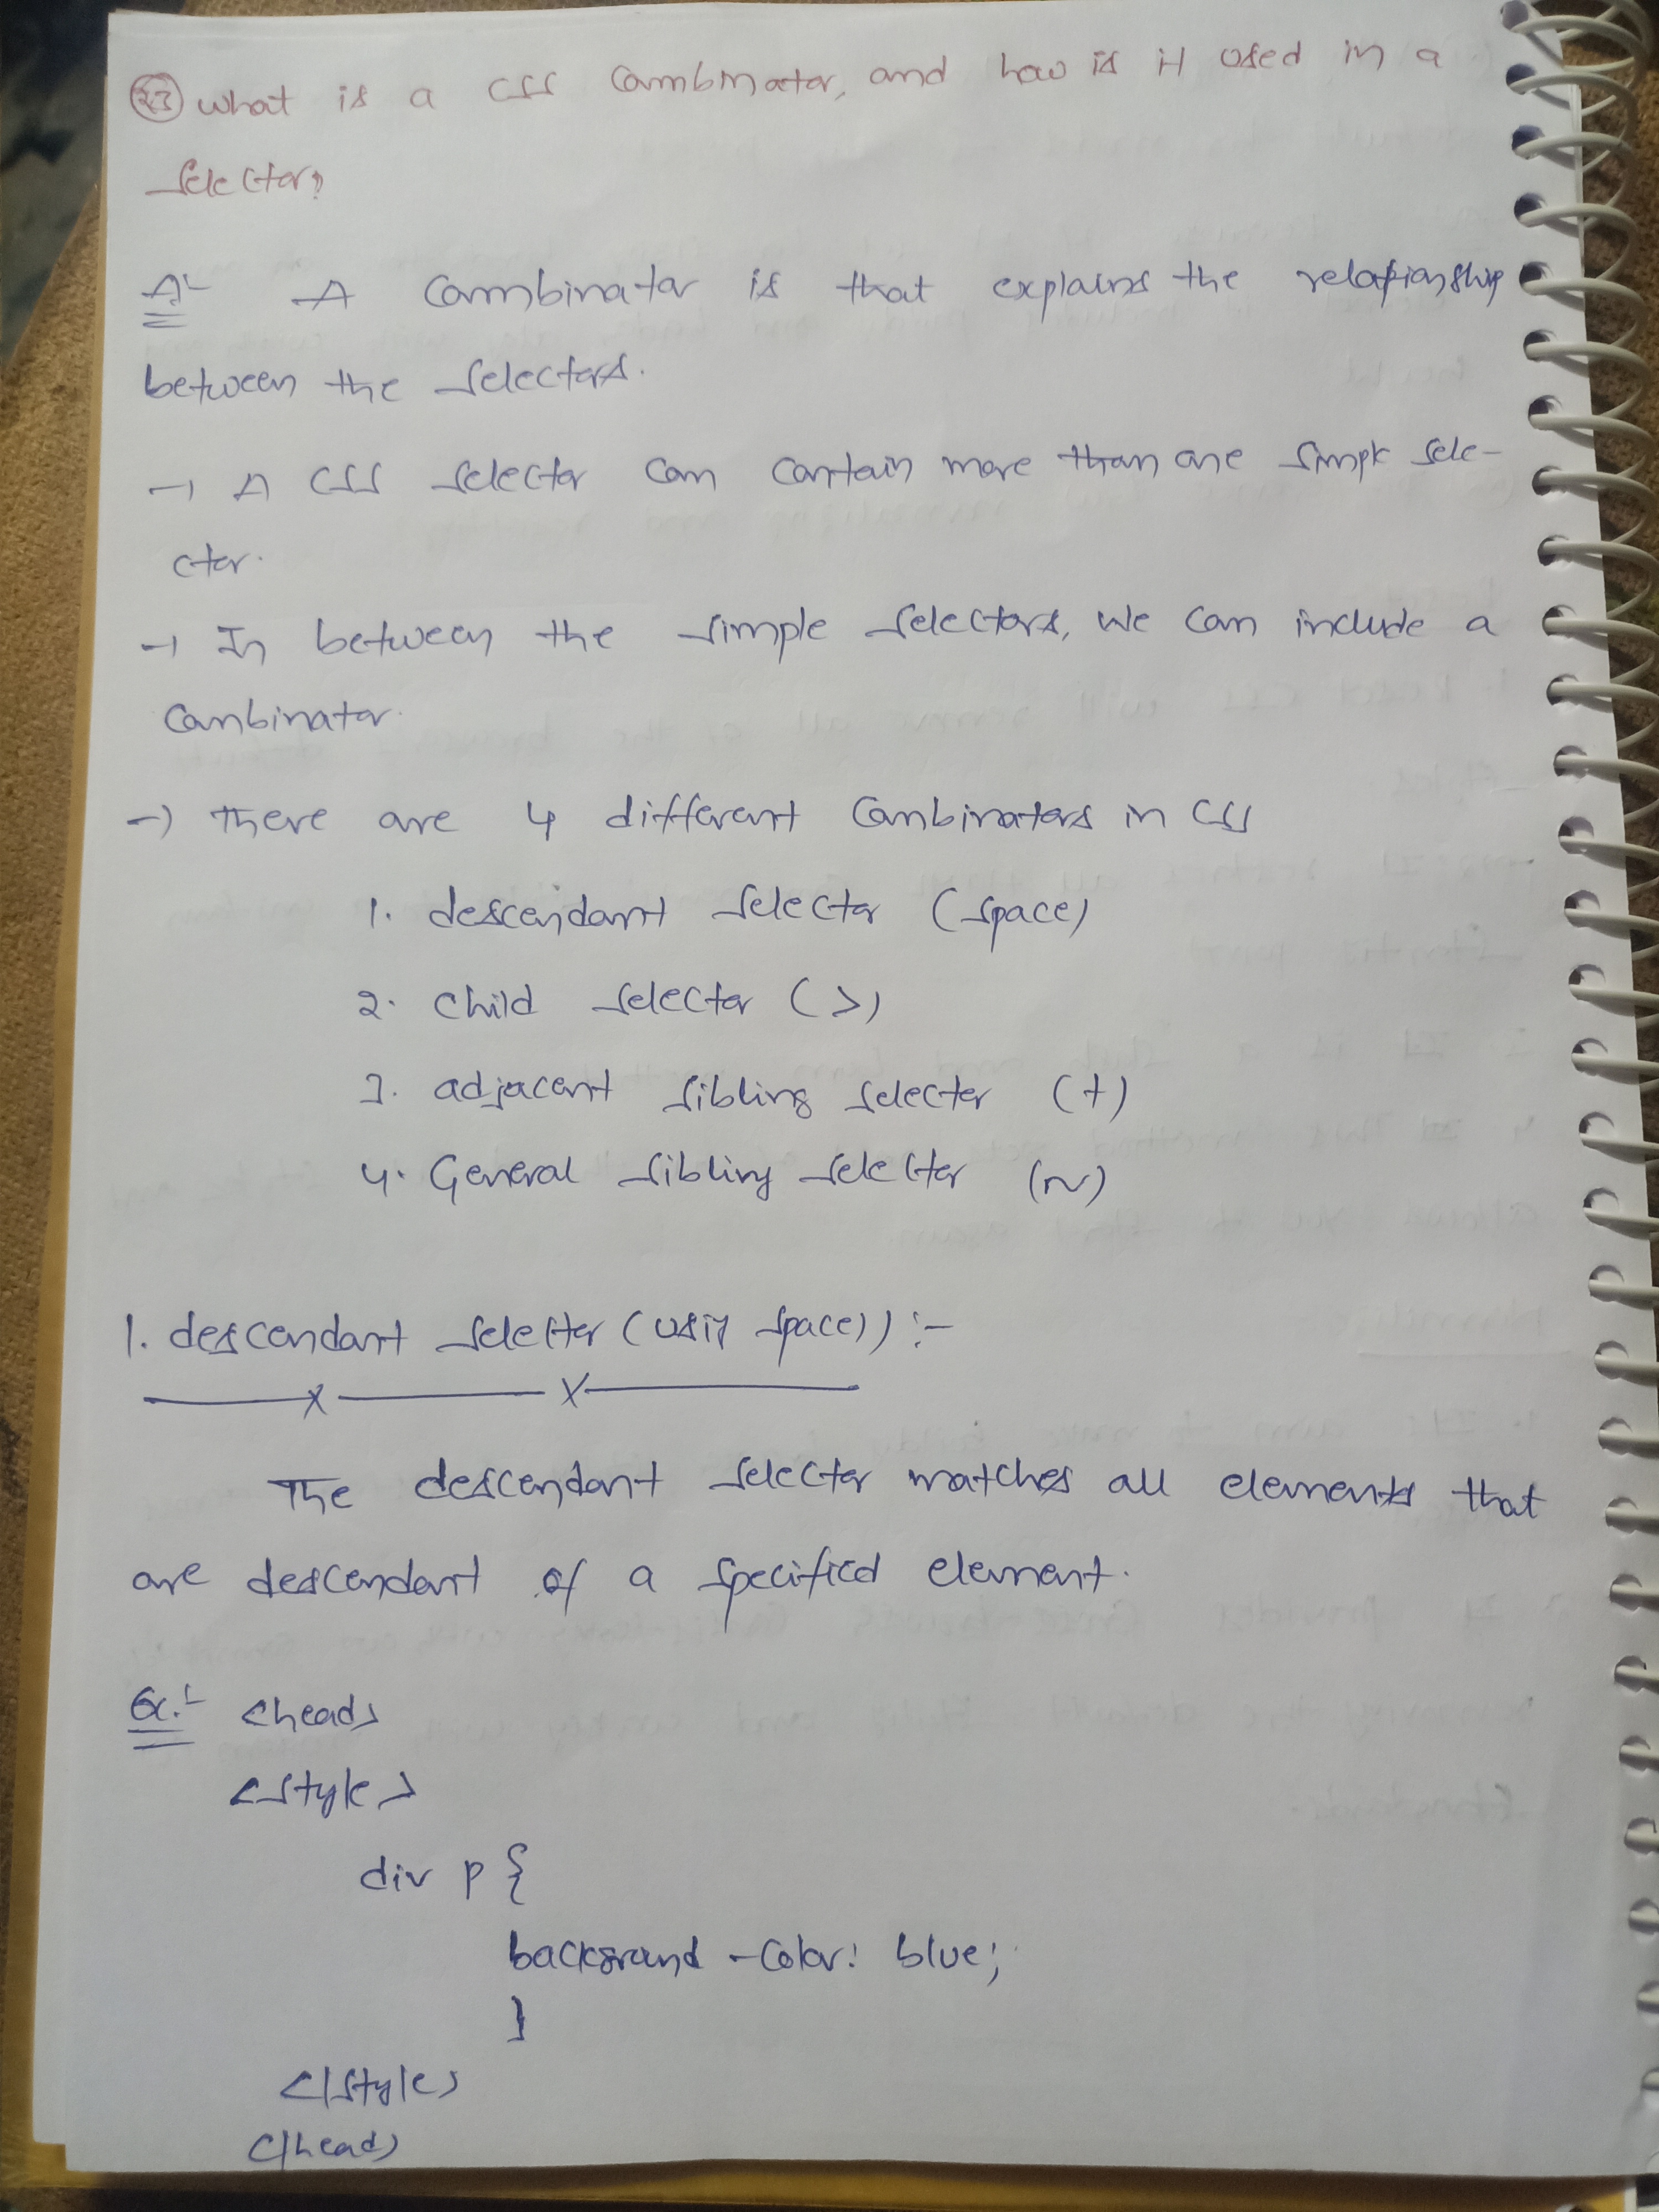 23 what is a CSS Combinator, and how is it used in a
selector?
A:- A Combinator is that explains the relationship
between the selectors.
→ A CSS selector can contain more than one simple sele-
ctor.
→ In between the simple selectors, we can include a
combinator.
→ There are 4 different Combinators in CSS
1. descendant selector (space)
2. child selector (>)
3. adjacent sibling selector (+)
4. General sibling selector (~)
1. descendant selector (using space)) :-
The descendant selector matches all elements that
are descendant of a specified element.
Ex:- <head>
<style>
div p {
background-color: blue;
}
</style>
</head>